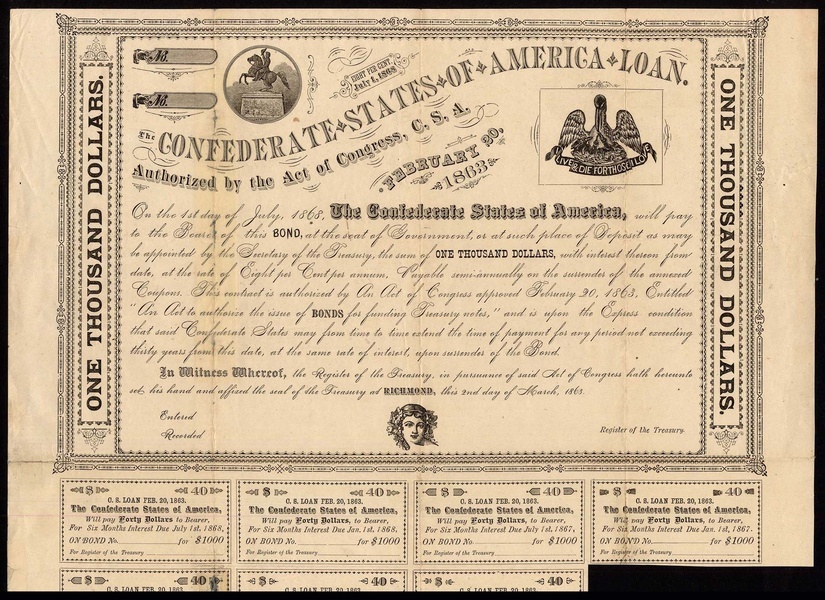 No.
No.
EIGHT PER CENT.
JULY 1, 1868
The CONFEDERATE STATES OF AMERICA LOAN.
Authorized by the Act of Congress, C. S. A.
FEBRUARY 20.
1863
LIVE & DIE FOR THOSE I LOVE
ONE THOUSAND DOLLARS.
ONE THOUSAND DOLLARS.
On the 1st day of July, 1868, The Confederate States of America, will pay
to the Bearer of this BOND, at the seat of Government, or at such place of Deposit as may
be appointed by the Secretary of the Treasury, the sum of ONE THOUSAND DOLLARS, with interest thereon from
date, at the rate of Eight per Cent per annum, Payable semi-annually on the surrender of the annexed
Coupons. This contract is authorized by An Act of Congress approved February 20, 1863, Entitled
"An Act to authorize the issue of BONDS for funding Treasury notes," and is upon the Express condition
that said Confederate States may from time to time extend the time of payment for any period not exceeding
thirty years from this date, at the same rate of interest, upon surrender of the Bond.
In Witness Whereof, the Register of the Treasury, in pursuance of said Act of Congress hath hereunto
set his hand and affixed the seal of the Treasury at RICHMOND, this 2nd day of March, 1863.
Entered
Recorded
Register of the Treasury.
$ 40
C. S. LOAN FEB. 20, 1863.
The Confederate States of America,
Will pay Forty Dollars, to Bearer,
For Six Months Interest Due July 1st, 1868,
ON BOND No. for $1000
For Register of the Treasury
$ 40
C. S. LOAN FEB. 20, 1863.
The Confederate States of America,
Will pay Forty Dollars, to Bearer,
For Six Months Interest Due Jan. 1st, 1868.
ON BOND No. for $1000
For Register of the Treasury
$ 40
C. S. LOAN FEB. 20, 1863.
The Confederate States of America,
Will pay Forty Dollars, to Bearer,
For Six Months Interest Due July 1st, 1867,
ON BOND No. for $1000
For Register of the Treasury
$ 40
C. S. LOAN FEB. 20, 1863.
The Confederate States of America,
Will pay Forty Dollars, to Bearer,
For Six Months Interest Due Jan. 1st, 1867.
ON BOND No. for $1000
For Register of the Treasury
$ 40
C. S. LOAN FEB. 20, 1863.
$ 40
C. S. LOAN FEB. 20, 1863.
$ 40
C. S. LOAN FEB. 20, 1863.